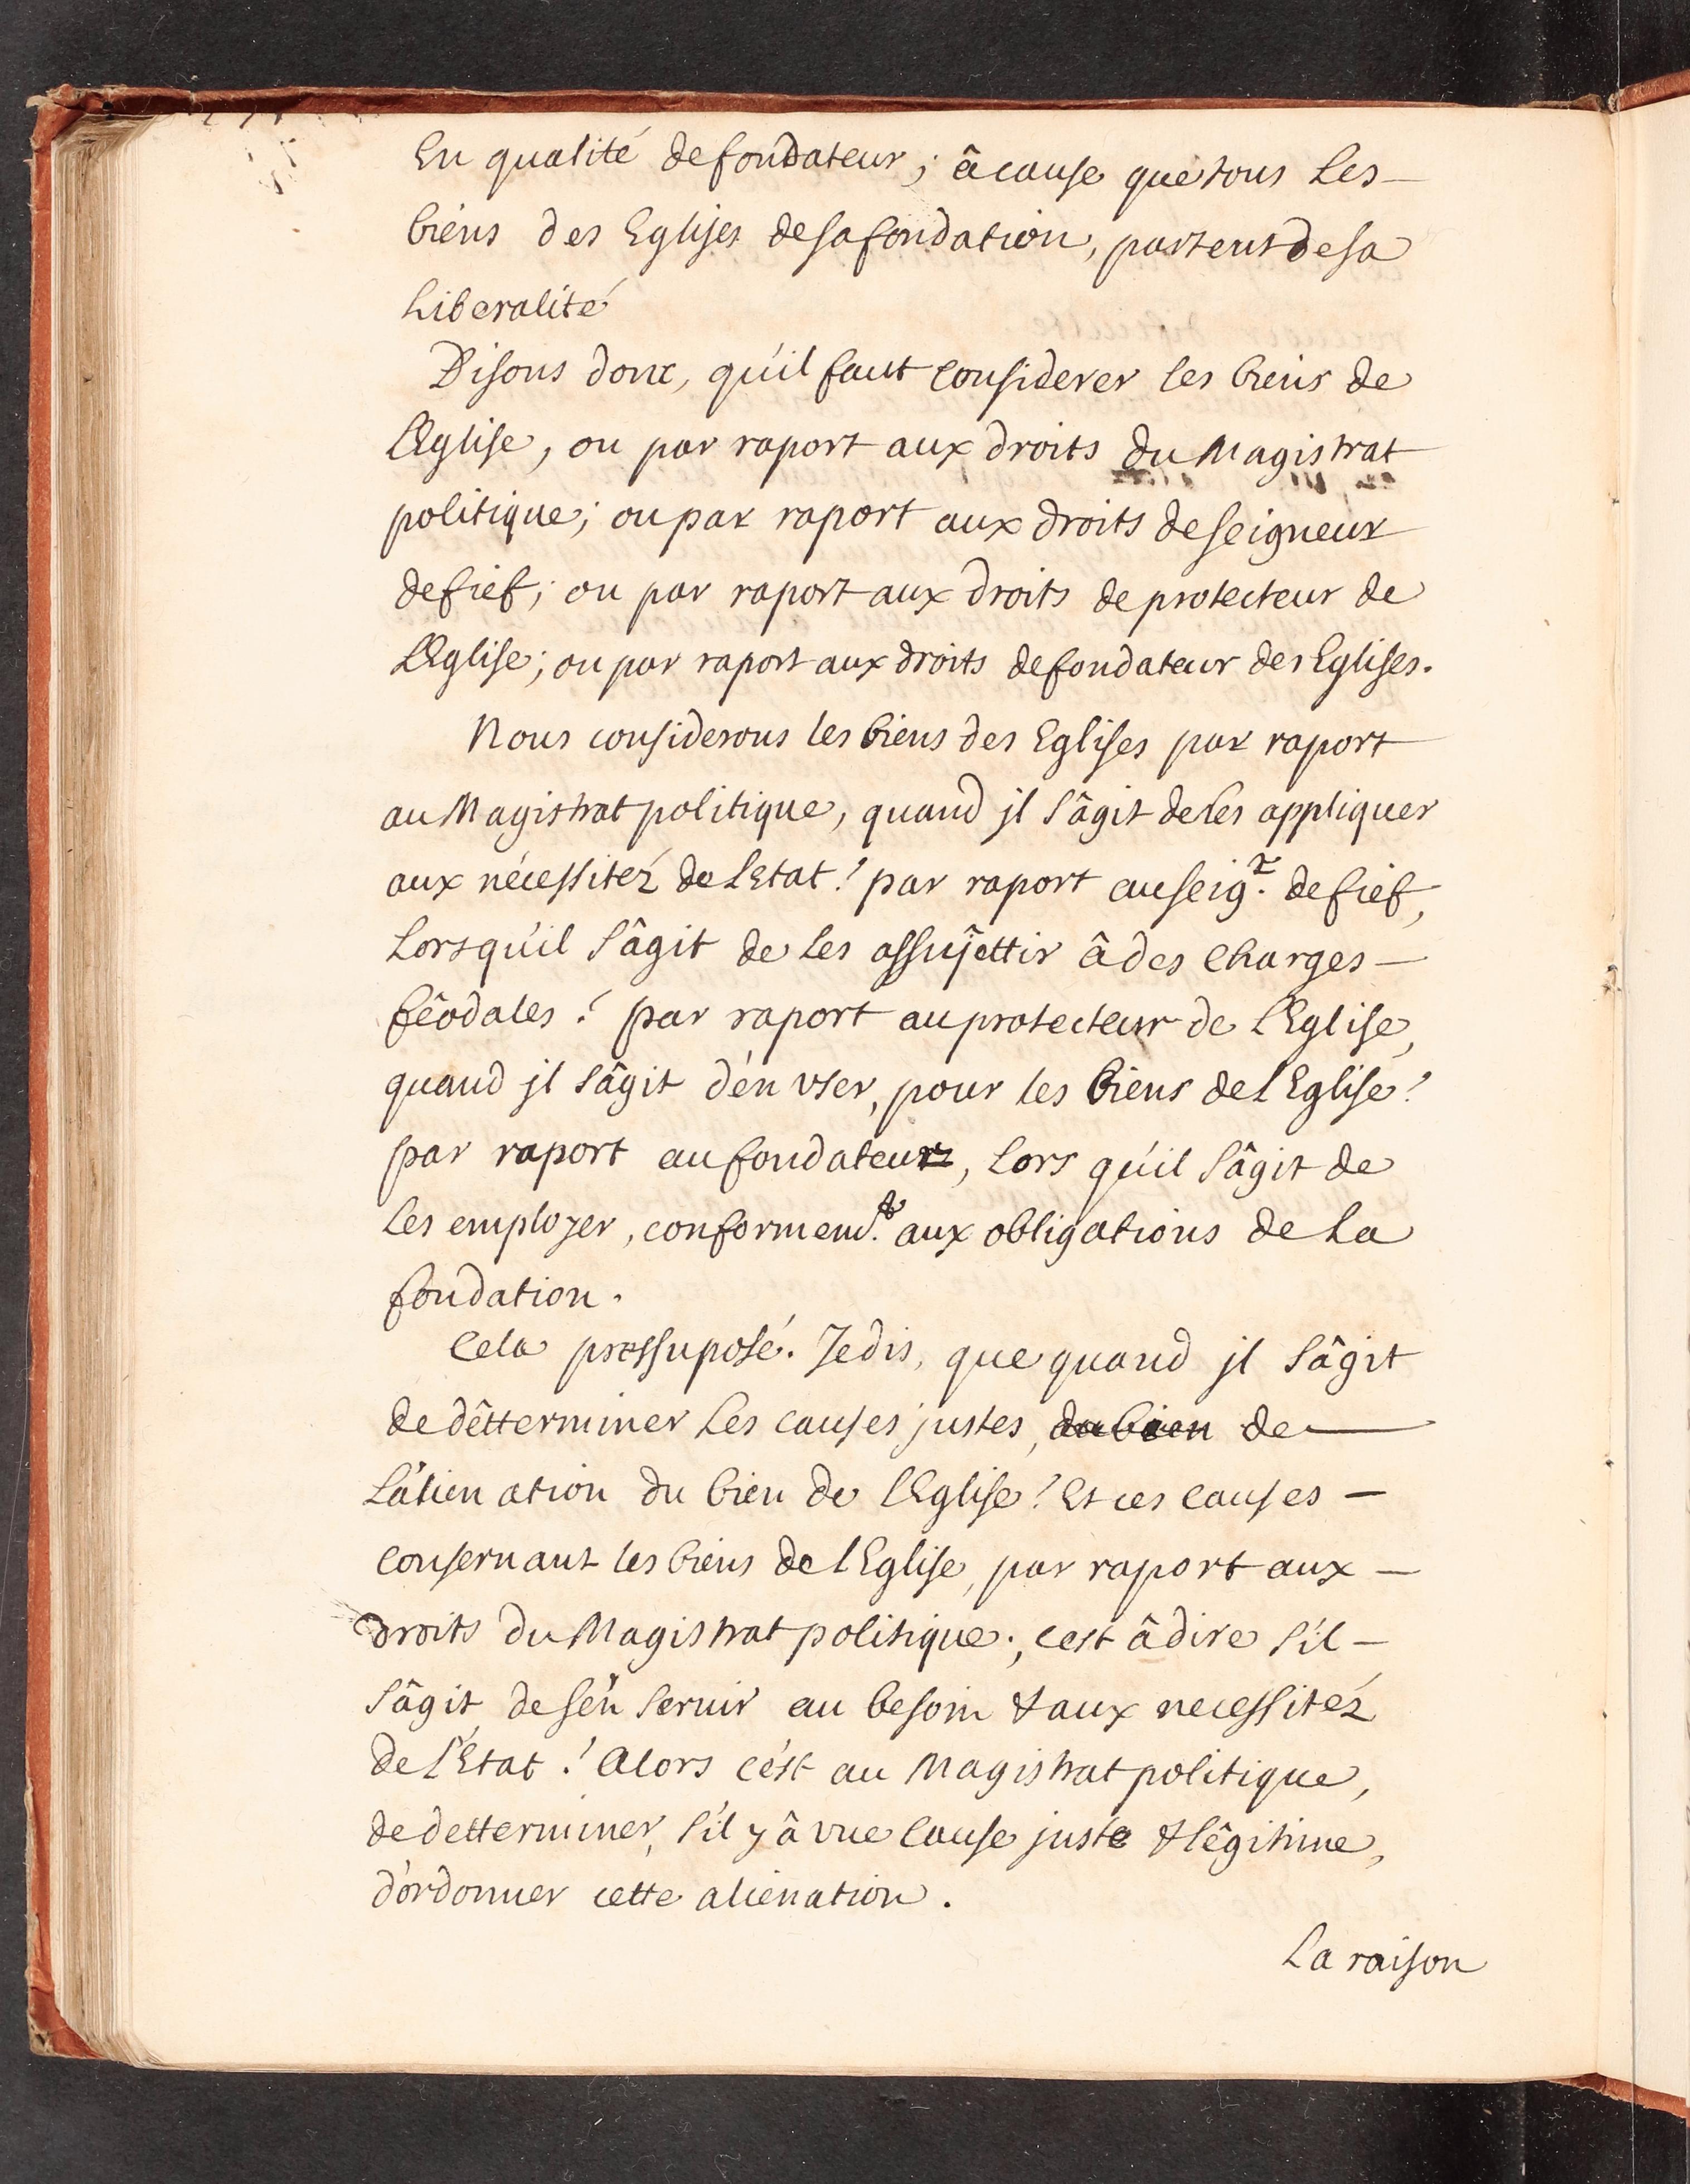 En qualité de fondateur; â cause que tous Les
biens des Eglises de sa fondation, partent de sa
Liberalité
Disons donc, qu'il faut Considerer les biens de
L'Eglise, ou par raport aux droits du Magistrat
politique; ou par raport aux droits de seigneur
de fief; ou par raport aux droits de protecteur de
L'Eglise; ou par raport aux droits de fondateur des Eglises.
Nous considerons les biens des Eglises par raport
au Magistrat politique, quand jl s'âgit de les appliquer
aux nécessitéz de L'Etat! par raport au seigr. de fief,
Lorsqu'il s'âgit de les assujettir â des Charges
fêodales! par raport au protecteur de L'Eglise,
quand jl s'âgit d'én vser, pour les biens de l'Eglise!
par raport au fondateur, Lors qu'il s'âgit de
Les employer, conformemt. aux obligations de La
fondation.
Cela pressuposé. Je dis, que quand jl s'âgit
de dêtterminer Les causes justes, du bien de
L'aliénation du bien de L'Eglise! Et ces Causes
Consernant les biens de l'Eglise, par raport aux
droits du Magistrat politique; c'est â dire s'il
s'âgit de s'én seruir au besoin & aux necessitéz
de l'Etat! Alors c'ést au Magistrat politique,
de detterminer, s'il y â vne Cause juste & lêgitime,
d'órdonner cette alienation.
La raison